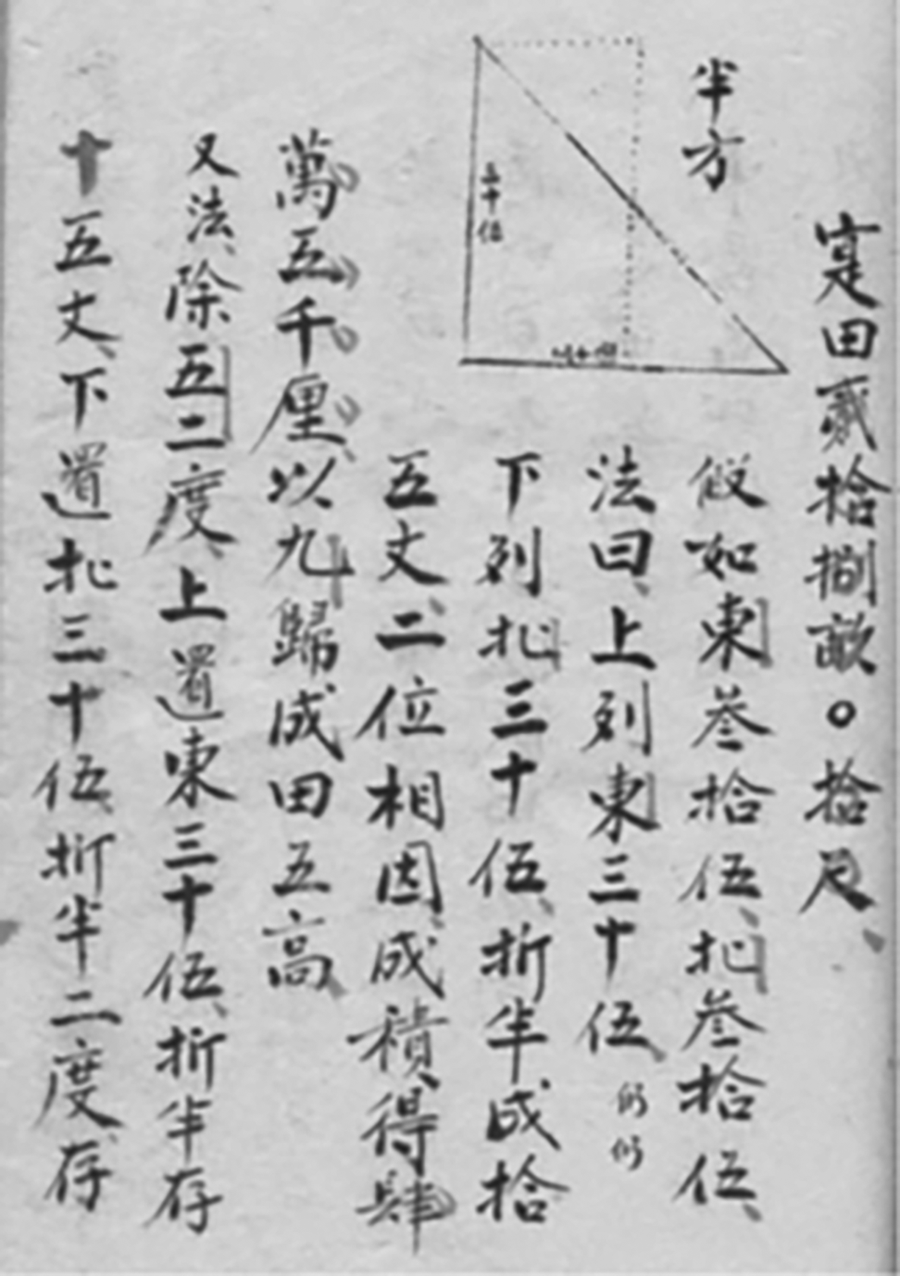 寔田貳拾捌畝○拾尺
半方
五十伍
假如東叁拾伍北叁拾伍
法曰上列東三十伍
下列北三十伍折半成拾
五丈二位相因成積得肆
萬五千厘以九歸成田五高
又法除五二度上置東三十伍折半存
十五丈下置北三十伍折半二度存